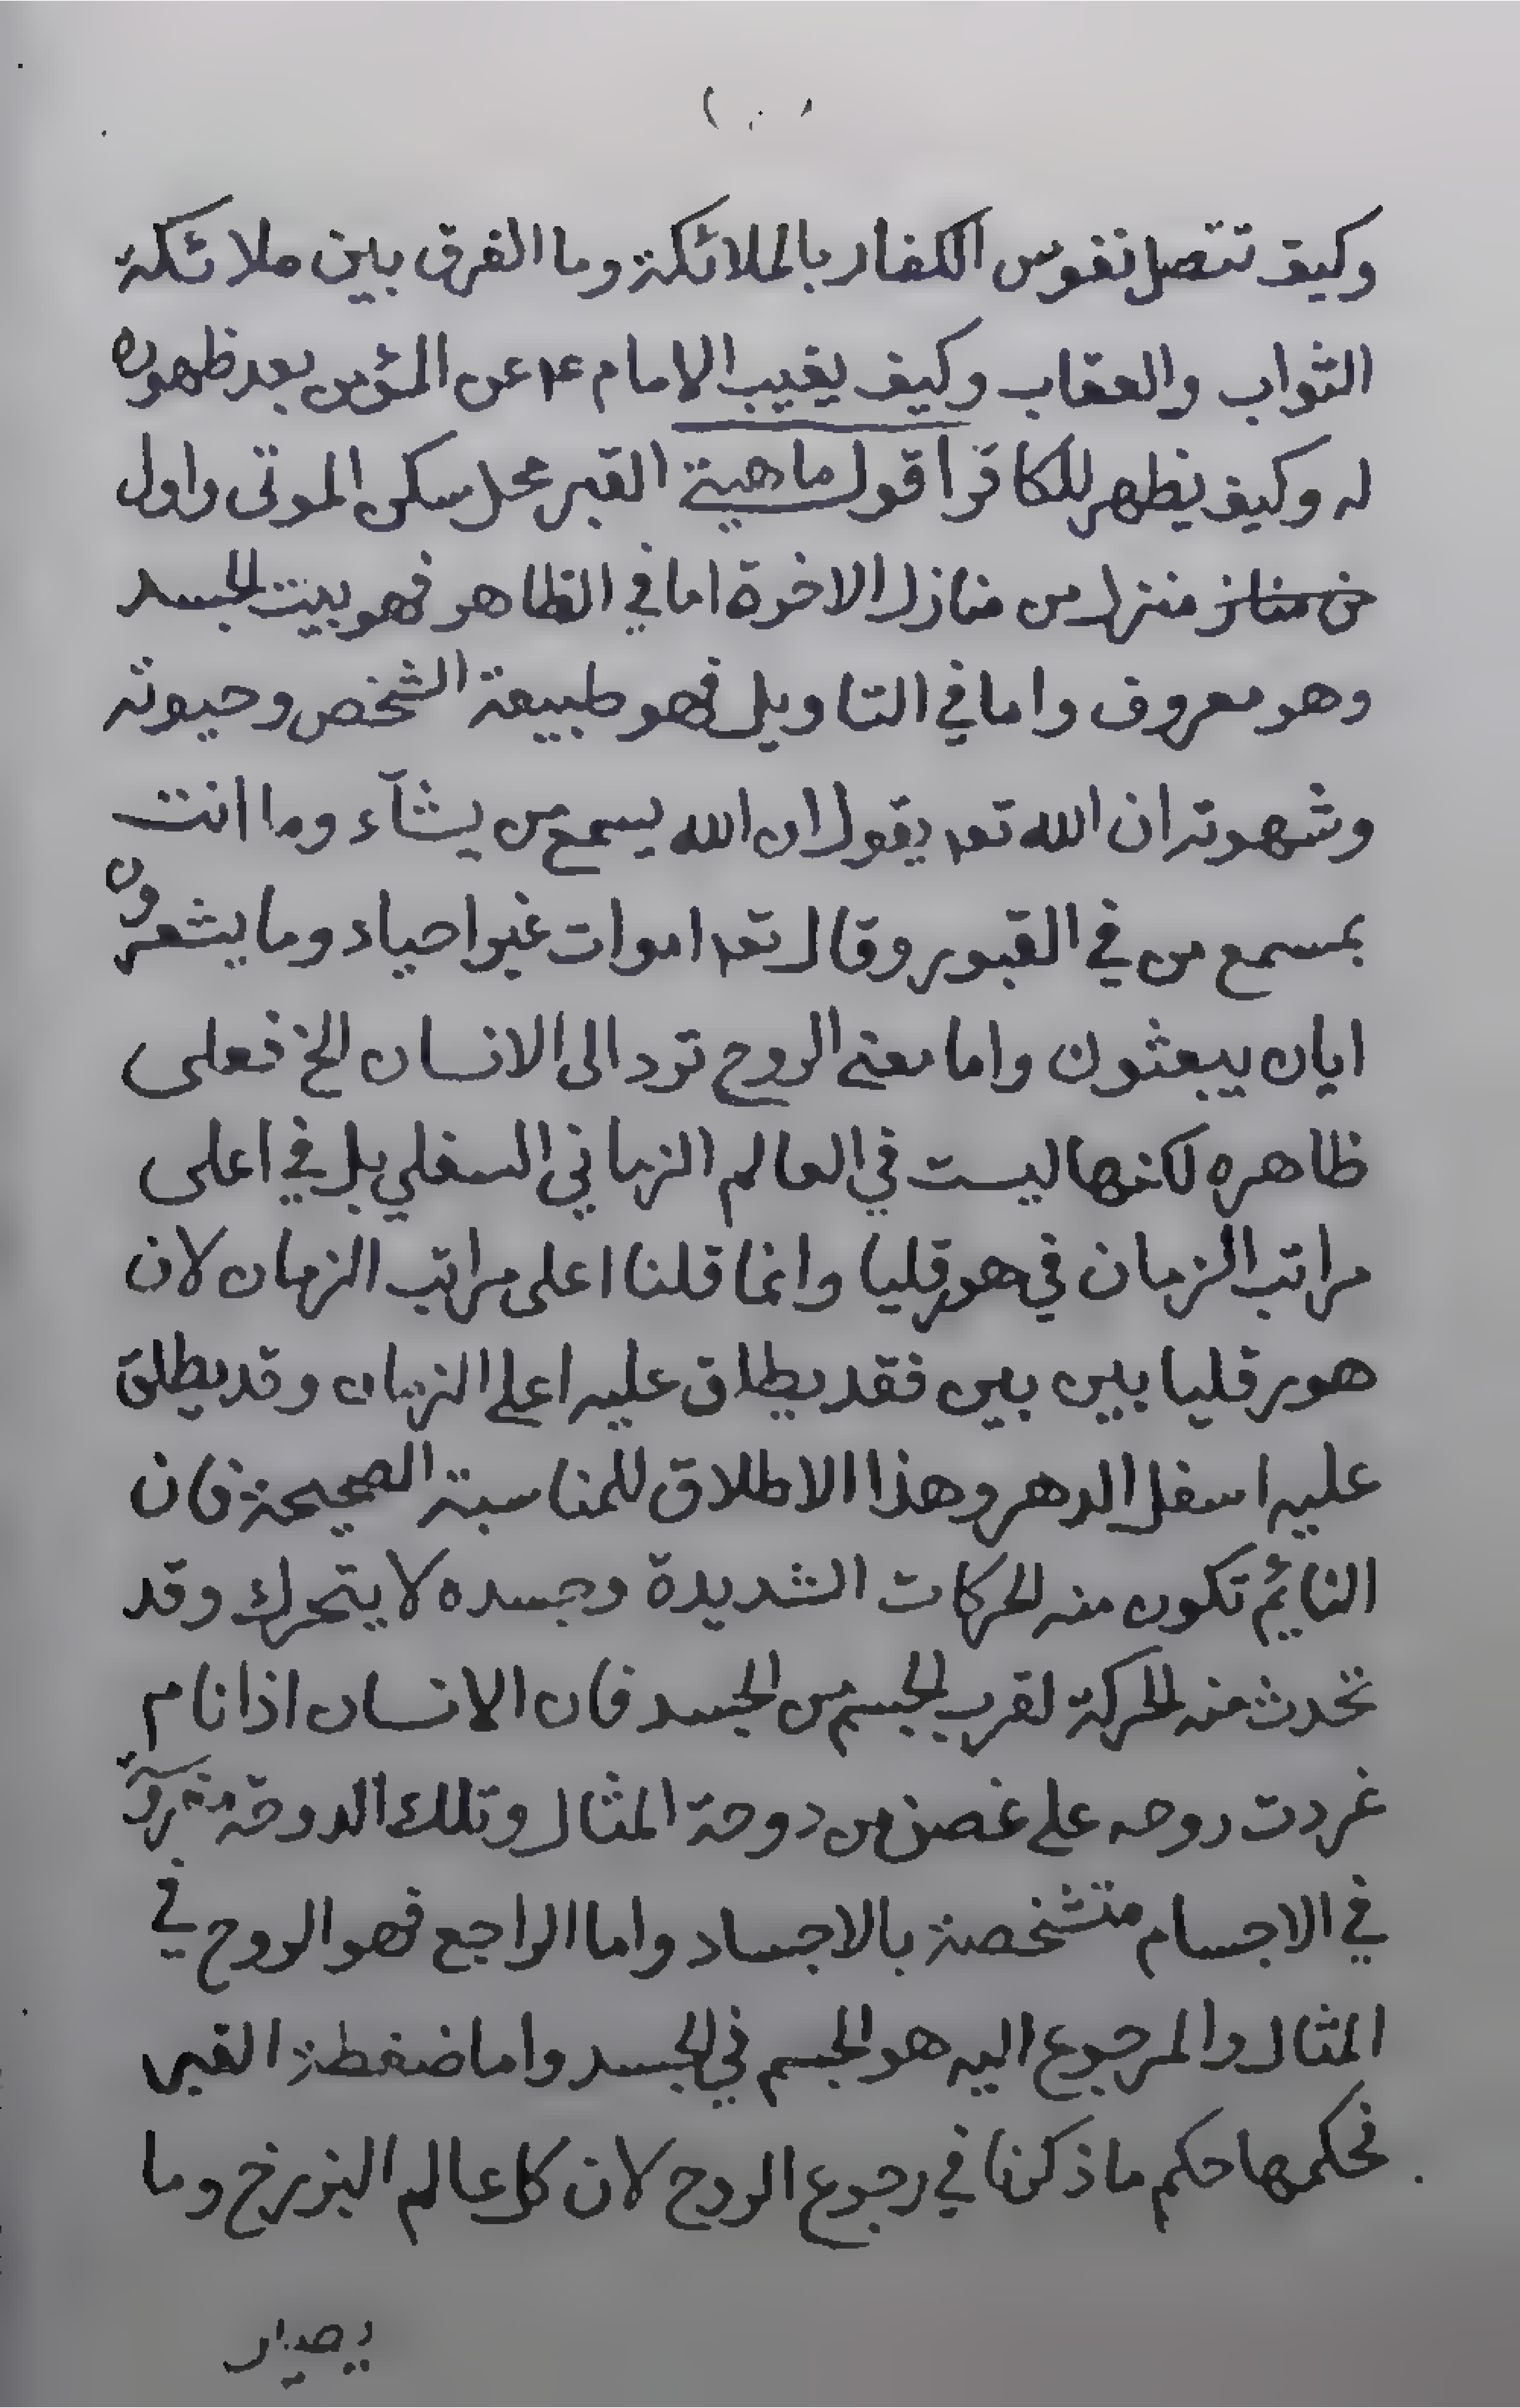 وكيف تتصل نفوس الكفار بالملائكة وما الفرق بين ملائكة
الثواب والعقاب وكيف يغيب الامام ع٣ عن المؤمن بعد ظهوره
له وكيف يظهر للكافر اقول ماهية القبر محل سكنى الموتى واول
من مناز منزل من منازل الاخرة اما في الظاهر فهو بيت الجسد
وهو معروف واما في التاويل فهو طبيعة الشخص وحيوته
وشهوته ان الله تعه يقول ان الله يسمع من يشآء وما انت
بمسمع من في القبور وقال تعه اموات غير احياء وما يشعرون
ايان يبعثون واما معنى الروح ترد الى الانسان الخ فعلى
ظاهره لكنها ليست في العالم الزماني السفلي بل في اعلى
مراتب الزمان في هورقليا وانما قلنا اعلى مراتب الزمان لان
هورقليا بين بين فقد يطلق عليه اعلى الزمان وقد يطلق
عليه اسفل الدهر وهذا الاطلاق للمناسبة الصحيحة فان
النائم تكون منه الحركات الشديدة وجسده لا يتحرك وقد
تحدث منه الحركة لقرب الجسم من الجسد فان الانسان اذا نام
غردت روحه على غصن من دوحة المثال وتلك الدوحة
في الاجسام متشخصة بالاجساد واما الراجع فهو الروح في
المثال والمرجوع اليه هو الجسم في الجسد واما ضغطة القبر
فحكمها حكم ما ذكرنا في رجوع الروح لان كل عالم البرزخ وما